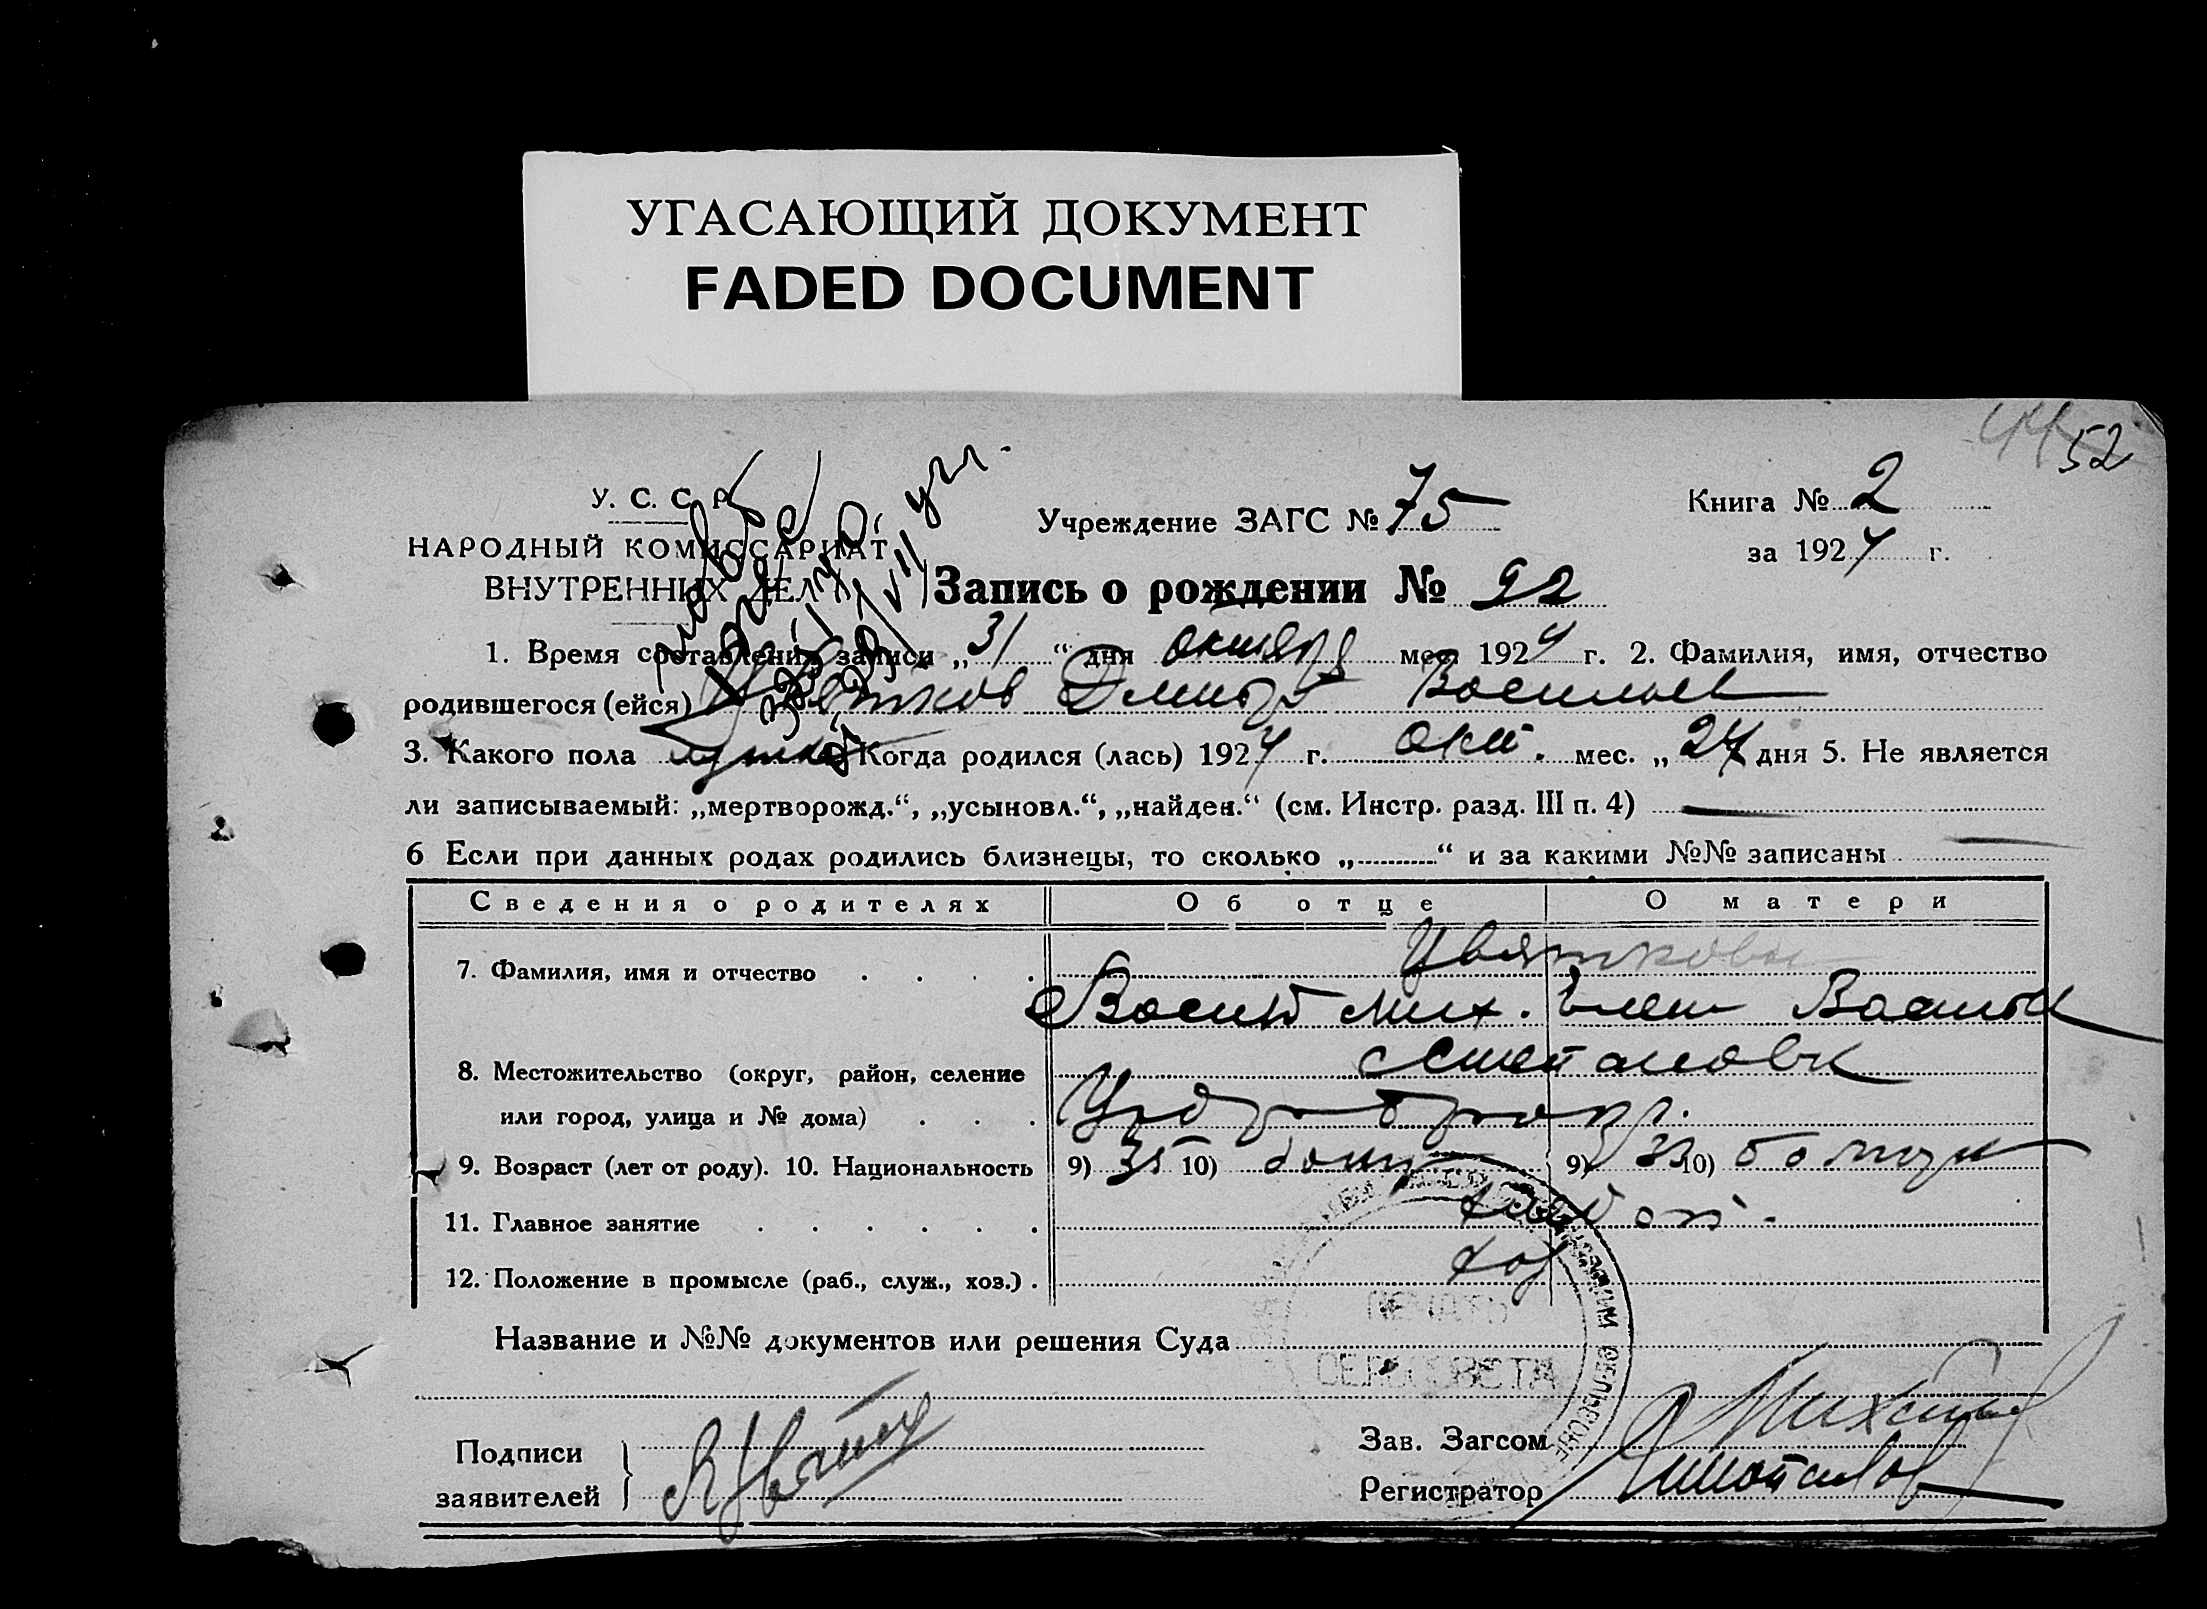 УГАСАЮЩИЙ ДОКУМЕНТ
FADED DOCUMENT
44 52
У. С. С. Р.
НАРОДНЫЙ КОМИССАРИАТ
ВНУТРЕННИХ ДЕЛ
Учреждение ЗАГС № 75
Книга № 2
за 1924 г.
Запись о рождении № 92
1. Время составления записи „31“ дня октября мес. 1924 г. 2. Фамилия, имя, отчество
родившегося (ейся) Дмитр Васильев
3. Какого пола Когда родился (лась) 1924 г. окт. мес. „24 дня 5. Не является
ли записываемый: „мертворожд.“, „усыновл.“, „найден.“ (см. Инстр. разд. III п. 4)
6 Если при данных родах родились близнецы, то сколько „ “ и за какими №№ записаны
Сведения о родителях Об отце О матери
7. Фамилия, имя и отчество Цвяткови
Васил Мих. Елен Василь
8. Местожительство (округ, район, селение
или город, улица и № дома)
9. Возраст (лет от роду). 10. Национальность 9) 35 10) болг 9) 33 10) болгарк
11. Главное занятие
12. Положение в промысле (раб., служ., хоз.) хоз
ПЕЧАТЬ
СЕЛЬСОВЕТА
Название и №№ документов или решения Суда
Подписи
заявителей
Зав. Загсом
Регистратор